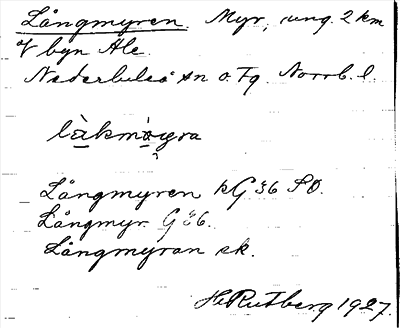 Långmyren. Myr, ung. 2 km
af byn Ale.
Nederluleå sn o. Tg. Norrb. l.
làkmòyra
Långmyren kG 36 SO.
Långmyr. G 36.
Långmyran ek.
H. Rutberg 1927.